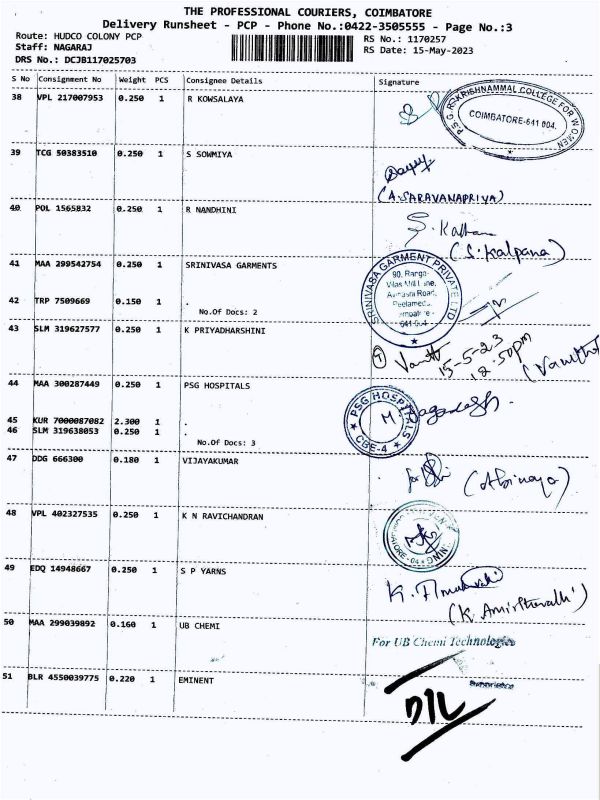 THE PROFESSIONAL COURIERS, COIMBATORE
Delivery Runsheet - PCP - Phone No.:0422-3505555 - Page No.:3
Route: HUDCO COLONY PCP RS No.: 1170257
Staff: NAGARAJ RS Date: 15-May-2023
DRS No.: DCJB117025703
S No Consignment No Weight PCS Consignee Details Signature
38 VPL 217007953 0.250 1 R KOWSALAYA
P.S.G.R. KRISHNAMMAL COLLEGE FOR WOMEN
COIMBATORE-641 004.
39 TCG 50383510 0.250 1 S SOWMIYA
(A.SARAVANAPRIYA)
40 POL 1565832 0.250 1 R NANDHINI
(S. Kalpana)
41 MAA 299542754 0.250 1 SRINIVASA GARMENTS
SRINIVASA GARMENT PRIVATE LTD
90, Ranga
Vilas Mill
Road,
42 TRP 7509669 0.150 1 .
No.Of Docs: 2
43 SLM 319627577 0.250 1 K PRIYADHARSHINI
15-5-23
12.50pm
44 MAA 300287449 0.250 1 PSG HOSPITALS
PSG HOSPITALS
CBE-4
45 KUR 7000087082 2.300 1 .
46 SLM 319638053 0.250 1 .
No.Of Docs: 3
47 DDG 666300 0.180 1 VIJAYAKUMAR
(Abinaya)
48 VPL 402327535 0.250 1 K N RAVICHANDRAN
49 EDQ 14948667 0.250 1 S P YARNS
50 MAA 299039892 0.160 1 UB CHEMI
For UB Chemi Technologies
51 BLR 4550039775 0.220 1 EMINENT